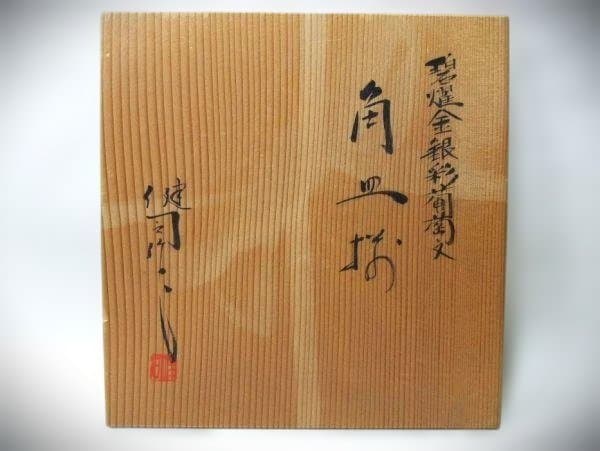 碧燿金銀彩葡萄文
角皿揃
健司